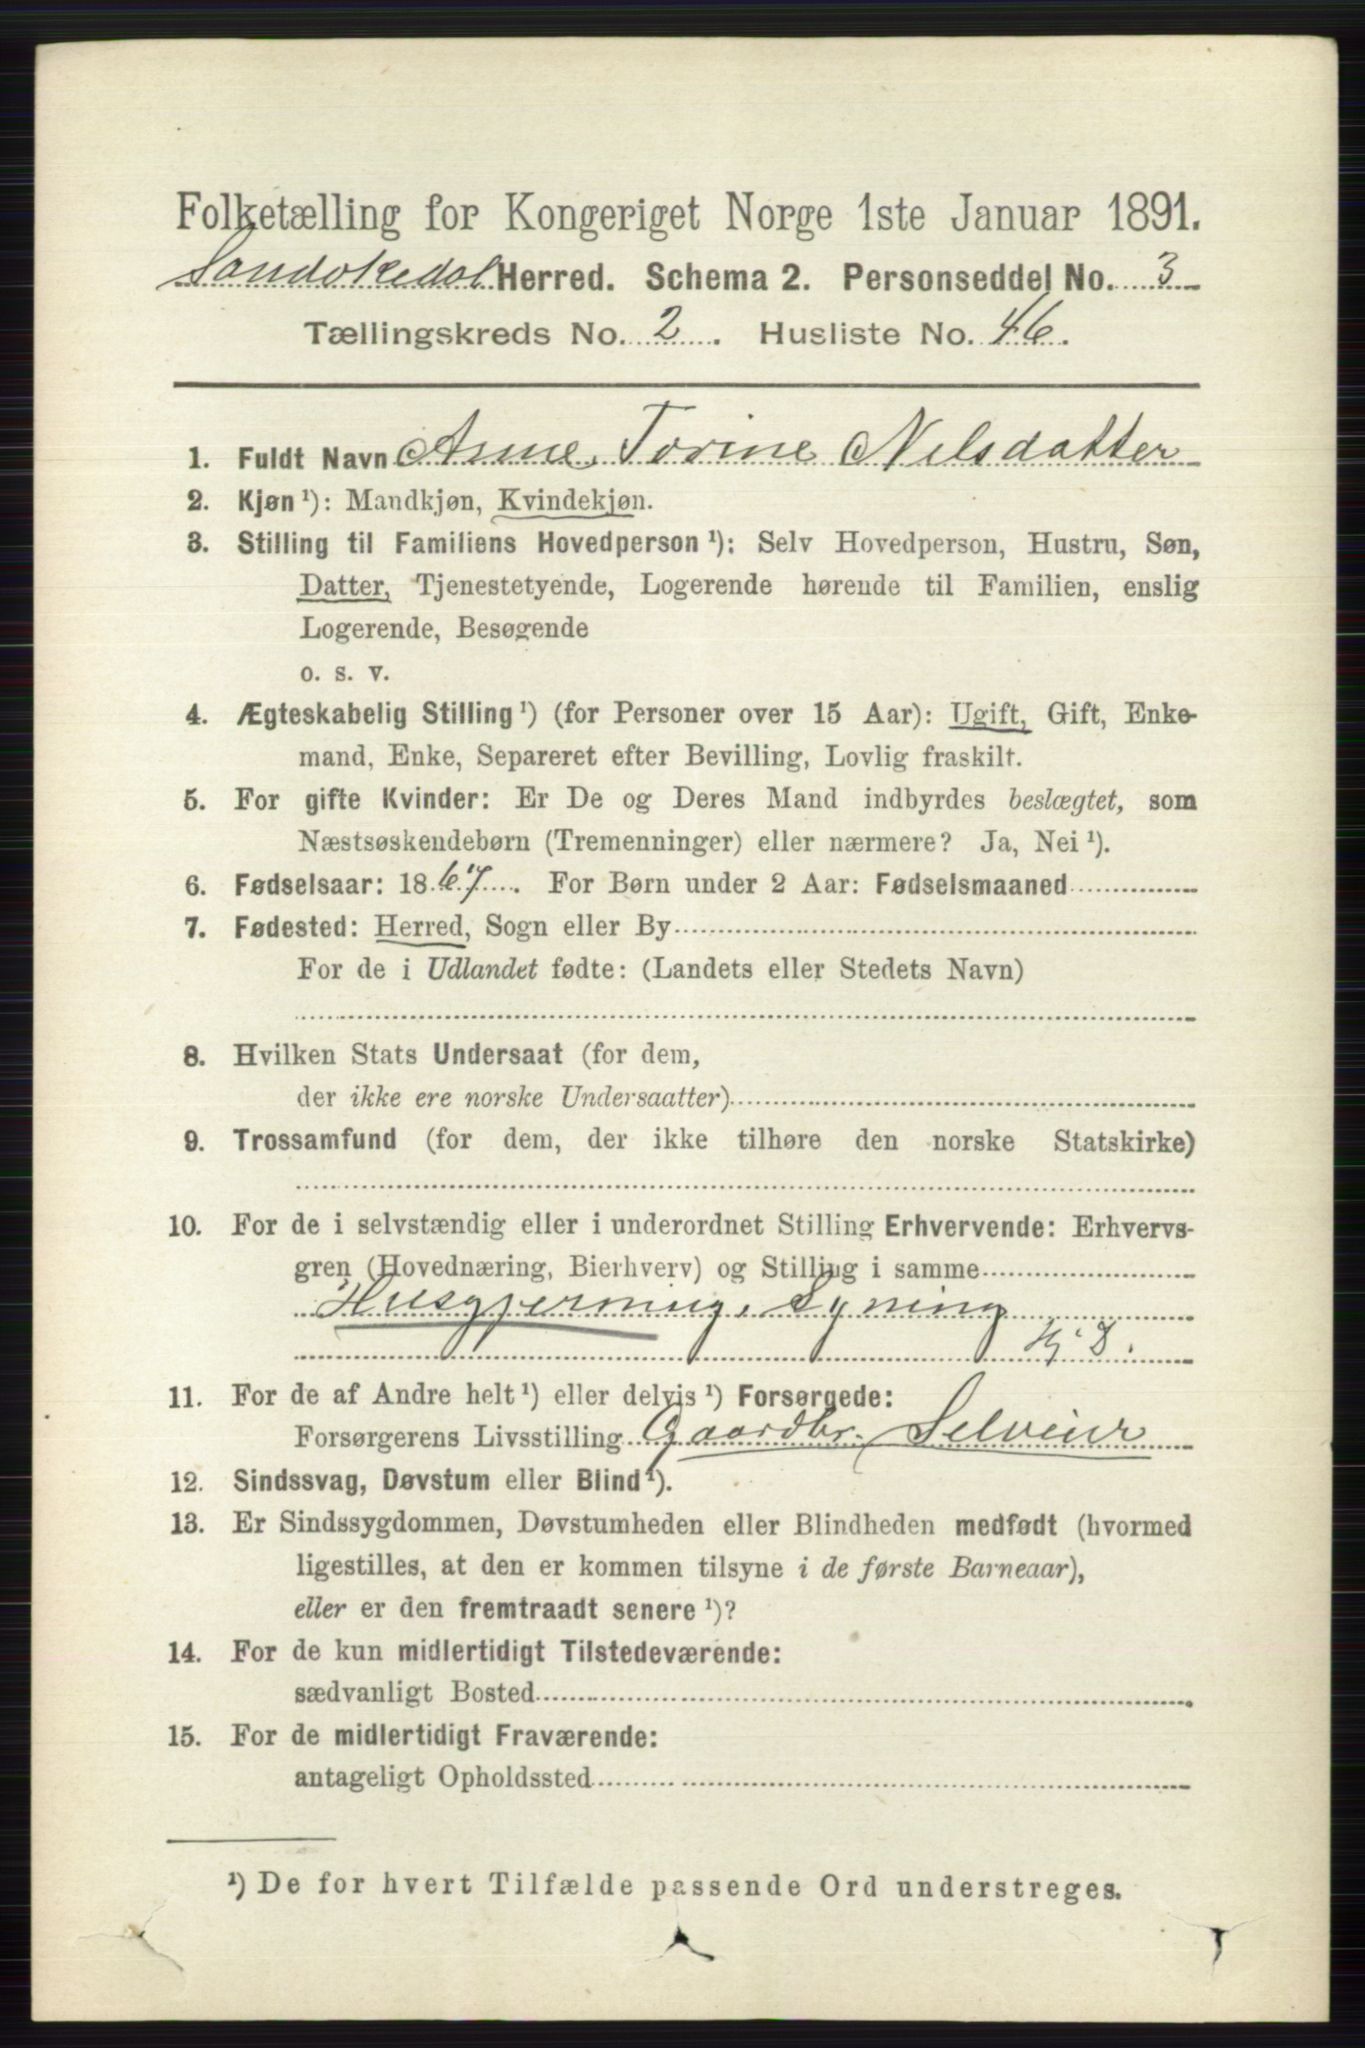 Folketælling for Kongeriget Norge 1ste Januar 1891.
Sandøkedal Herred. Schema 2. Personseddel No. 3
Tællingskreds No. 2. Husliste No. 46.
1. Fuldt Navn Anne Torine Nilsdatter
2. Kjøn ¹): Mandkjøn, Kvindekjøn.
3. Stilling til Familiens Hovedperson ¹): Selv Hovedperson, Hustru, Søn,
Datter, Tjenestetyende, Logerende hørende til Familien, enslig
Logerende, Besøgende
o. s. v.
4. Ægteskabelig Stilling ¹) (for Personer over 15 Aar): Ugift, Gift, Enke-
mand, Enke, Separeret efter Bevilling, Lovlig fraskilt.
5. For gifte Kvinder: Er De og Deres Mand indbyrdes beslægtet, som
Næstsøskendebørn (Tremenninger) eller nærmere? Ja, Nei ¹).
6. Fødselsaar: 1867. For Børn under 2 Aar: Fødselsmaaned
7. Fødested: Herred, Sogn eller By
For de i Udlandet fødte: (Landets eller Stedets Navn)
8. Hvilken Stats Undersaat (for dem,
der ikke ere norske Undersaatter)
9. Trossamfund (for dem, der ikke tilhøre den norske Statskirke)
10. For de i selvstændig eller i underordnet Stilling Erhvervende: Erhvervs-
gren (Hovednæring, Bierhverv) og Stilling i samme
Husgjerning, Syning
Hj. D.
11. For de af Andre helt ¹) eller delvis ¹) Forsørgede:
Forsørgerens Livsstilling Gaardbr. Selveier
12. Sindssvag, Døvstum eller Blind ¹).
13. Er Sindssygdommen, Døvstumheden eller Blindheden medfødt (hvormed
ligestilles, at den er kommen tilsyne i de første Barneaar),
eller er den fremtraadt senere ¹)?
14. For de kun midlertidigt Tilstedeværende:
sædvanligt Bosted
15. For de midlertidigt Fraværende:
antageligt Opholdssted
¹) De for hvert Tilfælde passende Ord understreges.